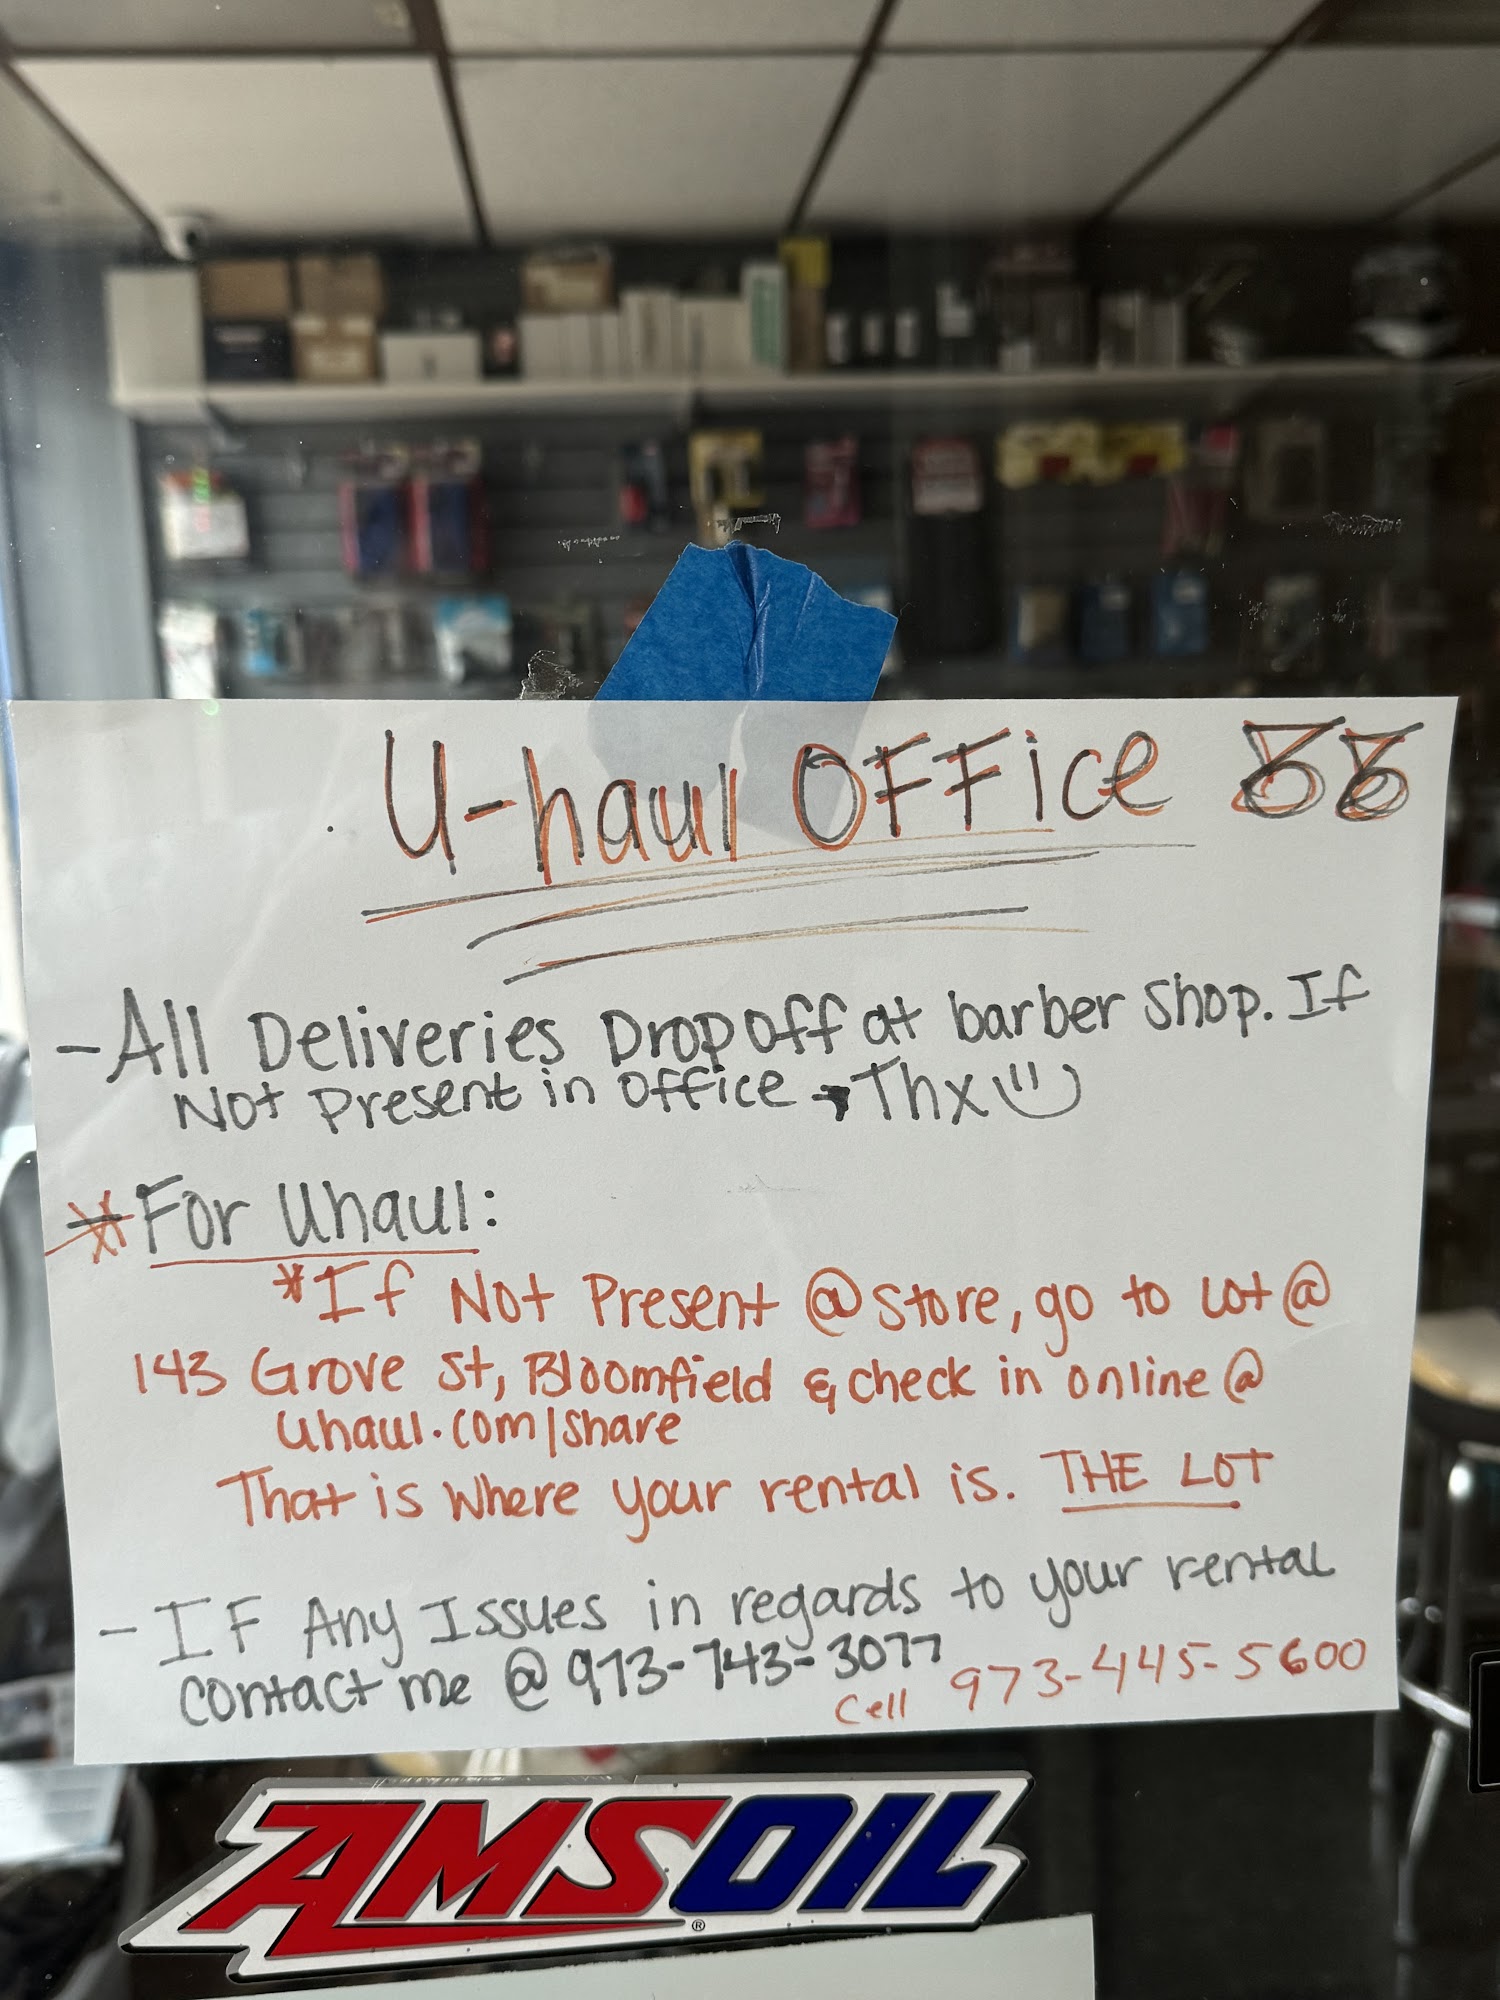 U-haul OFFice !!
- All Deliveries Drop off at barber shop. If
Not Present in office → Thx
* For Uhaul:
*If Not Present @ store, go to Lot @
143 Grove st, Bloomfield & check in online @
uhaul.com/share
That is where your rental is. THE LOT
- IF Any Issues in regards to your rental
contact me @ 973-743-3077
cell 973-445-5600
AMSOIL
®